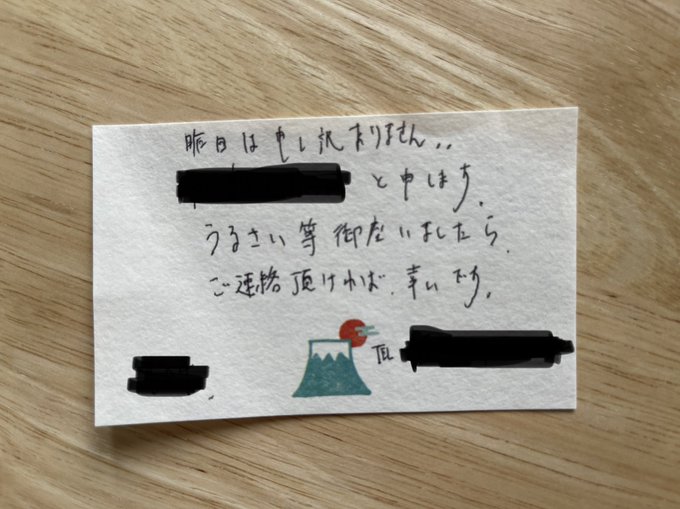 昨日は申し訳ありません..
と申します。
うるさい等御座いましたら、
ご連絡頂ければ、幸いです。
TEL